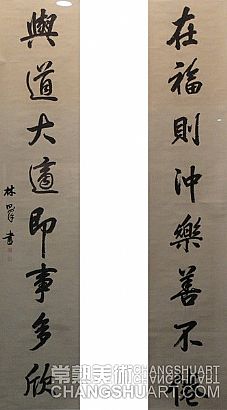 在福則沖樂善不倦
與道大適即事多欣
林則徐書
常熟美術 CHANGSHUART
CHANGSHUART.COM